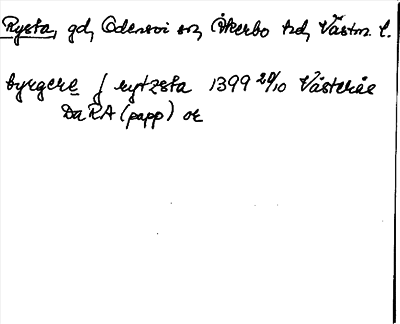 Rysta, gd, Odensvi sn, Åkerbo hd, Västm. l.
byrgere j rytzsta 1399 20/10 Västerås
DaRA (papp) or